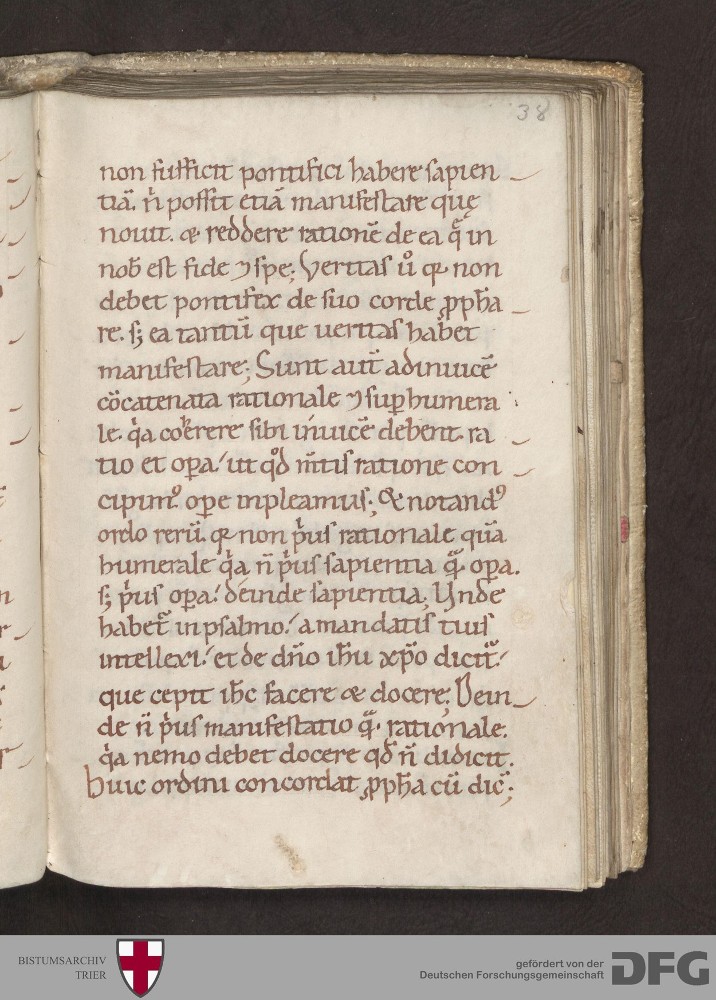 38
non sufficit pontifici habere sapien
tiā. n̍ possit etiā manifestare quę
nouit. & reddere rationē de ea q̄ in
nob̄ est fide ⁊ spe; Veritas u̾o qr non
debet pontifex de suo corde ꝓph̄a
re. s; ea tantū que ueritas hab̄et
manifestare; Sunt aut̄ adinuicē
cōcatenata rationale ⁊ sup̄humera
le. q̍a coh̄erere sibi inuicē debent. ra
tio et op̄a / ut qd̾ m̄tis ratione con
cipimꝰ ope inpleamus; & notandꝰ
ordo rerū. qr non p̍us rationale quā
humerale q̍a n̄ p̍us sapientia q̄ op̄a.
s; p̍us op̄a / deinde sapientia; Vnde
habet᷑ in psalmo / a mandatis tuis
intellexi / et de dn̄o ih̄u xp̄o dicit᷑ /
que cepit ih̄c facere & docere; Dein
de n̄ p̍us manifestatio q̄. rationale.
q̍a nemo debet docere qd̾ n̄ didicit.
huic ordini concordat ꝓph̄a cū dic̄;
BISTUMSARCHIV
TRIER
gefördert von der
Deutschen Forschungsgemeinschaft
DFG